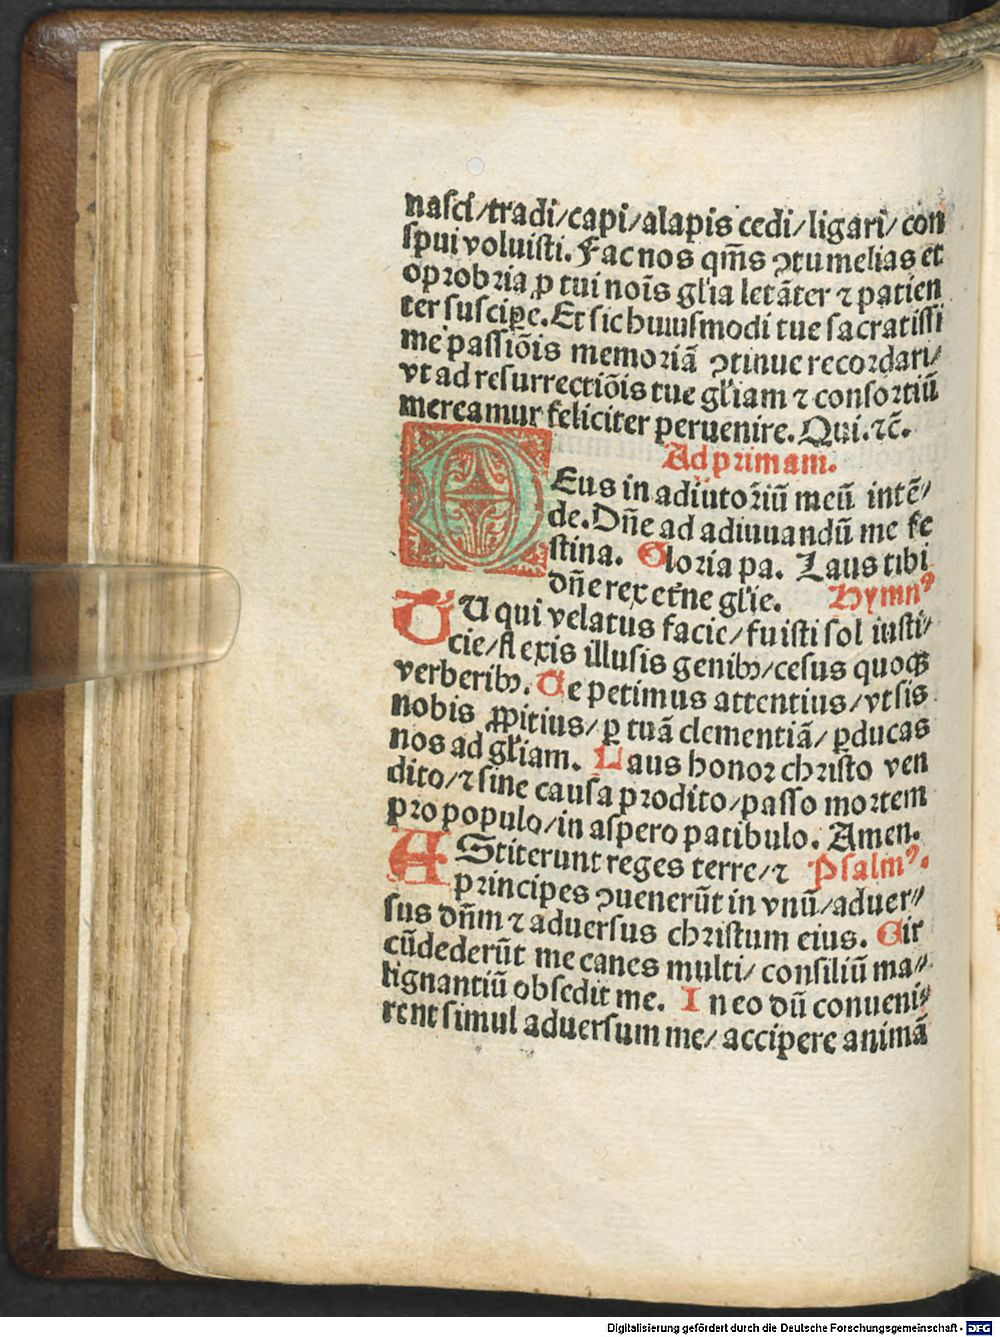 nasci/tradi/capi/alapis cedi/ligari/con
spui voluisti. Fac nos qm̃s ꝯtumelias et
opꝛobꝛia ꝓ tui noīs gl̃ia letāter ⁊ patien
ter suscipe. Et sic huiusmodi tue sacratissi
me passiōis memoriā ꝯtinue recoꝛdari/
vt ad resurrectiōis tue gl̃iam ⁊ consoꝛtiū
mereamur feliciter peruenire. Qui. ⁊c̃.
Ad pꝛimam.
DEus in adiutoꝛiū meū intē/
de. Dñe ad adiuuandū me fe
stina. Gloꝛia pa. Laus tibi
dñe rex et̃ne gl̃ie. Hymnꝰ
TU qui velatus facie/fuisti sol iusti/
cie/flexis illusis genibꝫ/cesus quoqꝫ
verberibꝫ. Te petimus attentius/vt sis
nobis ꝓpitius/ꝑ tuā clementiā/ꝑducas
nos ad gl̃iam. Laus honoꝛ chꝛisto ven
dito/⁊ sine causa pꝛodito/passo moꝛtem
pꝛo populo/in aspero patibulo. Amen.
AStiterunt reges terre/⁊ Psalmꝰ.
pꝛincipes ꝯuenerūt in vnū/aduer/
sus dñm ⁊ aduersus chꝛistum eius. Cir
cūdederūt me canes multi/consiliū ma/
lignantiū obsedit me. In eo dū conueni/
rent simul aduersum me/accipere animā
Digitalisierung gefördert durch die Deutsche Forschungsgemeinschaft - DFG